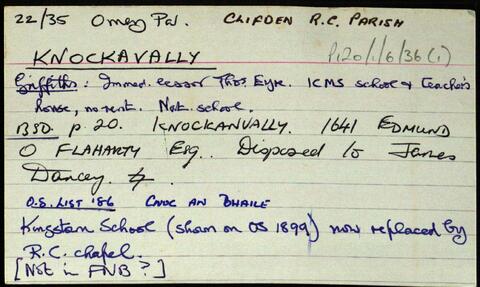 22/35 Omey Par. CLIFDEN R.C. PARISH
KNOCKAVALLY P120/1/6/36(1)
Griffiths: Immed. lessor Thos Eyre. ICMS school & teacher's
house, no rent. Nat. school.
BSD. p. 20. KNOCKANVALLY. 1641 EDMUND
O FLAHARTY Esq. Disposed to James
Darcey.
O.S. LIST '86 CNOC AN BHAILE
Kingstan School (shown on OS 1899) now replaced by
R.C. chapel.
[Not in FNB?]